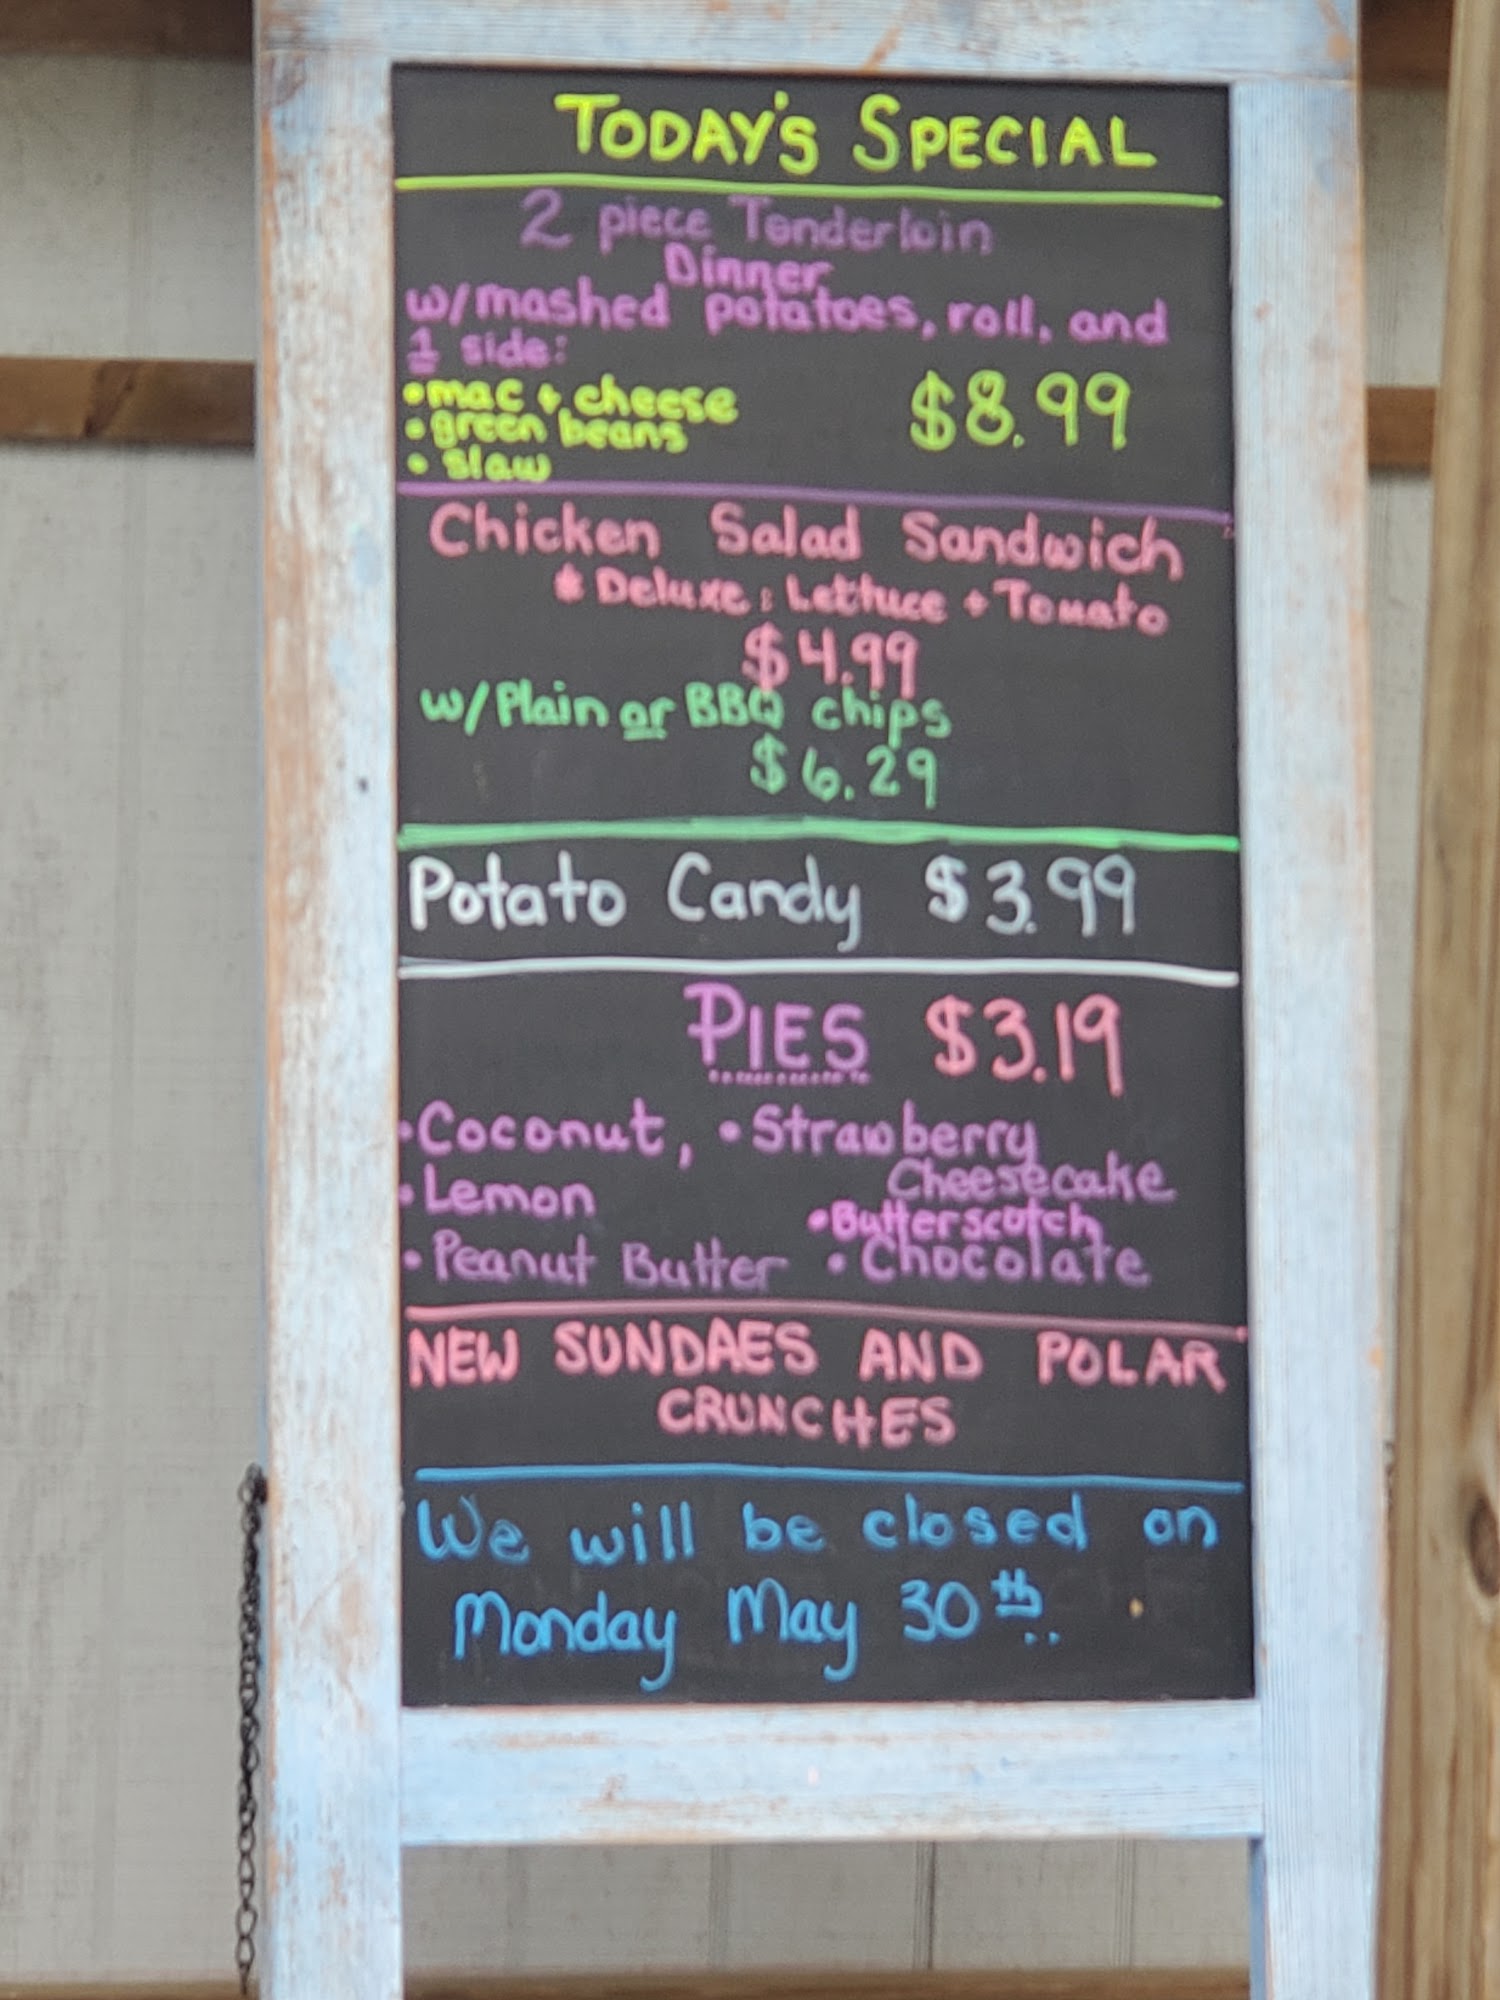 TODAY'S SPECIAL
2 piece Tenderloin
Dinner
w/mashed potatoes, roll, and
1 side:
•mac + cheese
$8.99
•green beans
• slaw
Chicken Salad Sandwich
* Deluxe: Lettuce + Tomato
$4.99
w/Plain or BBQ chips
$6.29
Potato Candy $3.99
PIES $3.19
•Coconut, •Strawberry
Cheesecake
•Lemon
•Butterscotch
•Peanut Butter •Chocolate
NEW SUNDAES AND POLAR
CRUNCHES
We will be closed on
Monday May 30th..